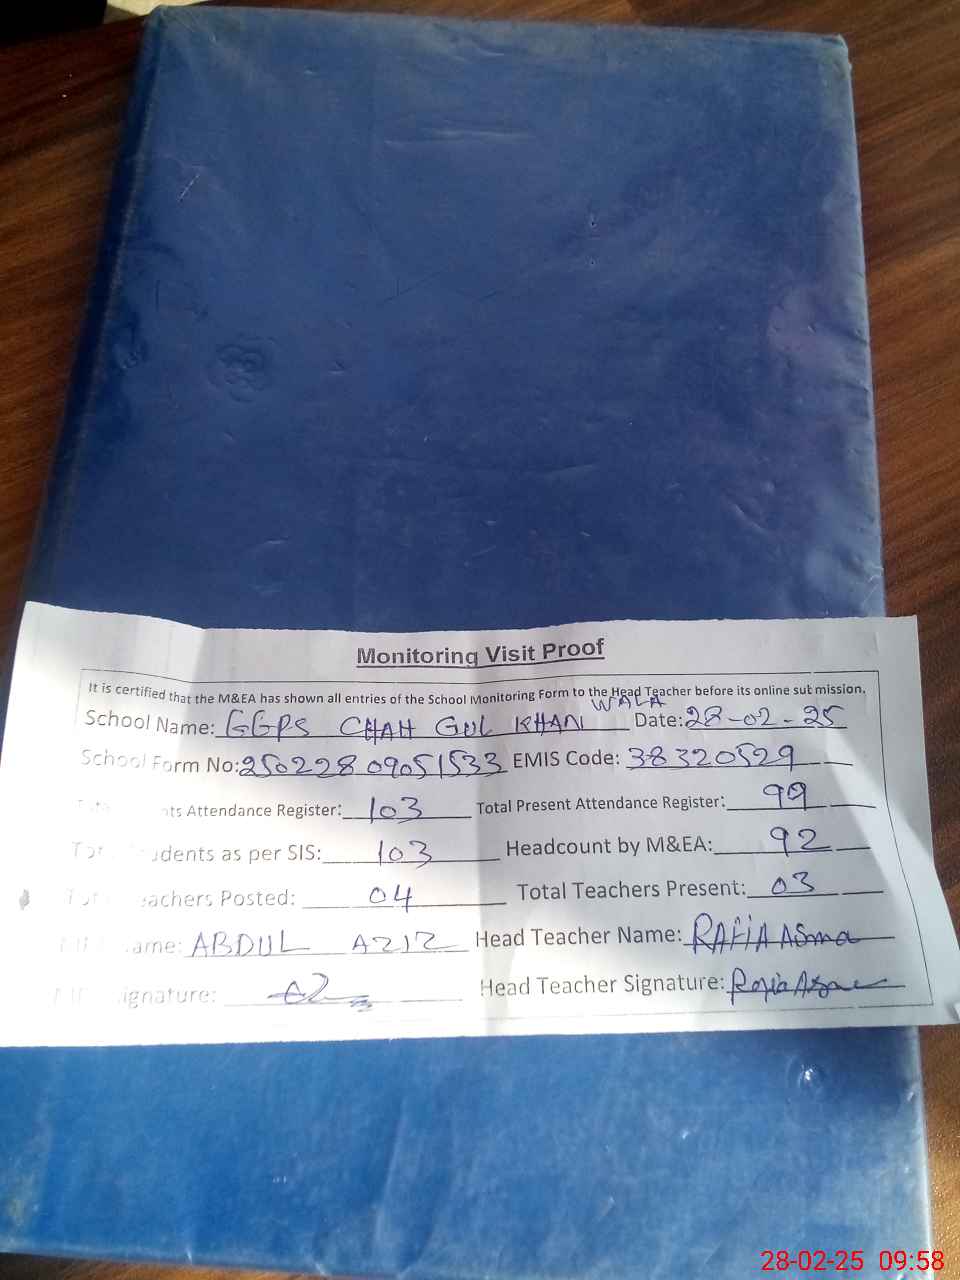 Monitoring Visit Proof
It is certified that the M&EA has shown all entries of the School Monitoring Form to the Head Teacher before its online submission.
School Name: GGPS CHAH GUL KHAN WALA Date: 28-02-25
School Form No: 25022809051533 EMIS Code: 38320529
Attendance Register: 103 Total Present Attendance Register: 99
as per SIS: 103 Headcount by M&EA: 92
Posted: 04 Total Teachers Present: 03
ABDUL AZIZ Head Teacher Name: RAFIA ASma
Head Teacher Signature: Rafia Asma
28-02-25 09:58